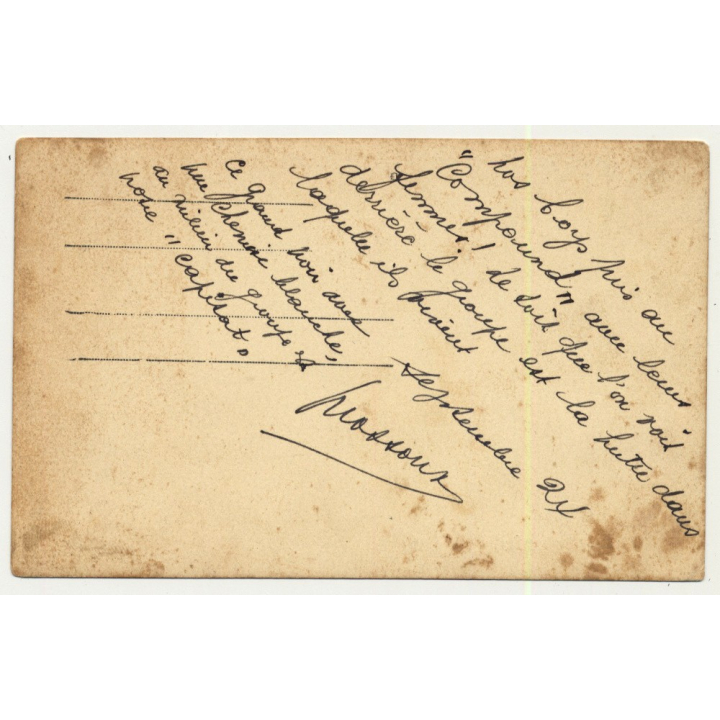 nos boys pris au
"Compound" avec leurs
femmes! le toit que l'on voit
derrière le groupe est la hutte dans
laquelle ils vivent
ce grand noir avec
une chemise blanche,
au milieu du groupe est
notre "capitat".
Septembre 24